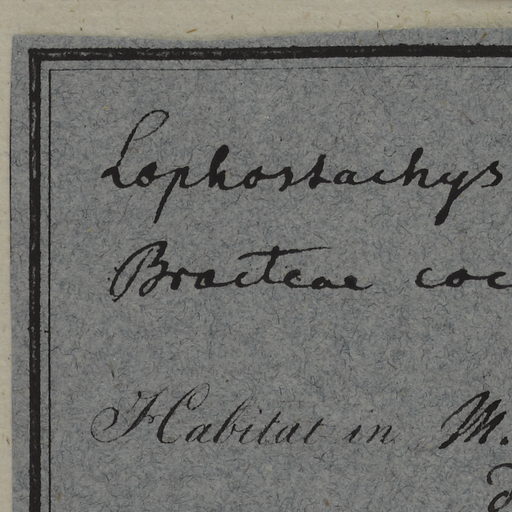 Lophostachys
Bracteae coc
Habitat in M.